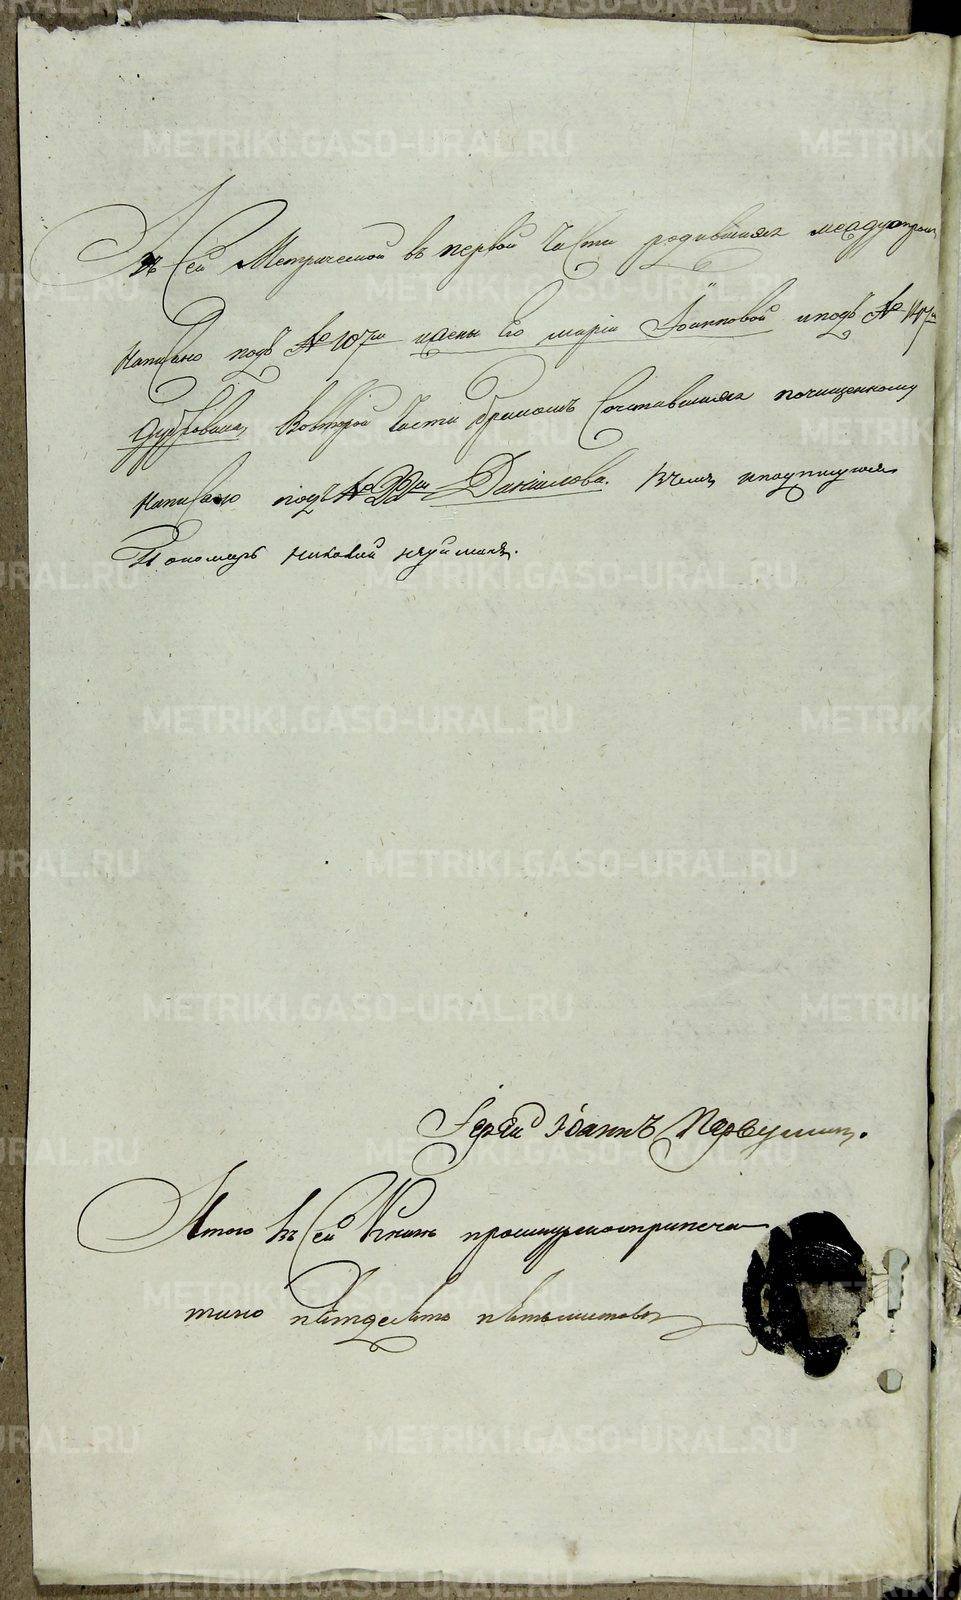 Въ Сей Метрической въ первой Части родившихся между строк
Написано подъ № 107м жены Его Маріи Іоанновой и подъ № 147м
Дубровина, Вовторой Части бракомъ Сочетавшихся почищенному
Написано подъ № 33м Данилова. Въ чемъ и подписуюсь
Пономарь Николай
Іерей Іоаннъ Первушинъ.
Итого въ Сей Книгѣ прошнурено припеча
тано пятдесятъ пять листовъ
METRIKI.GASO-URAL.RU